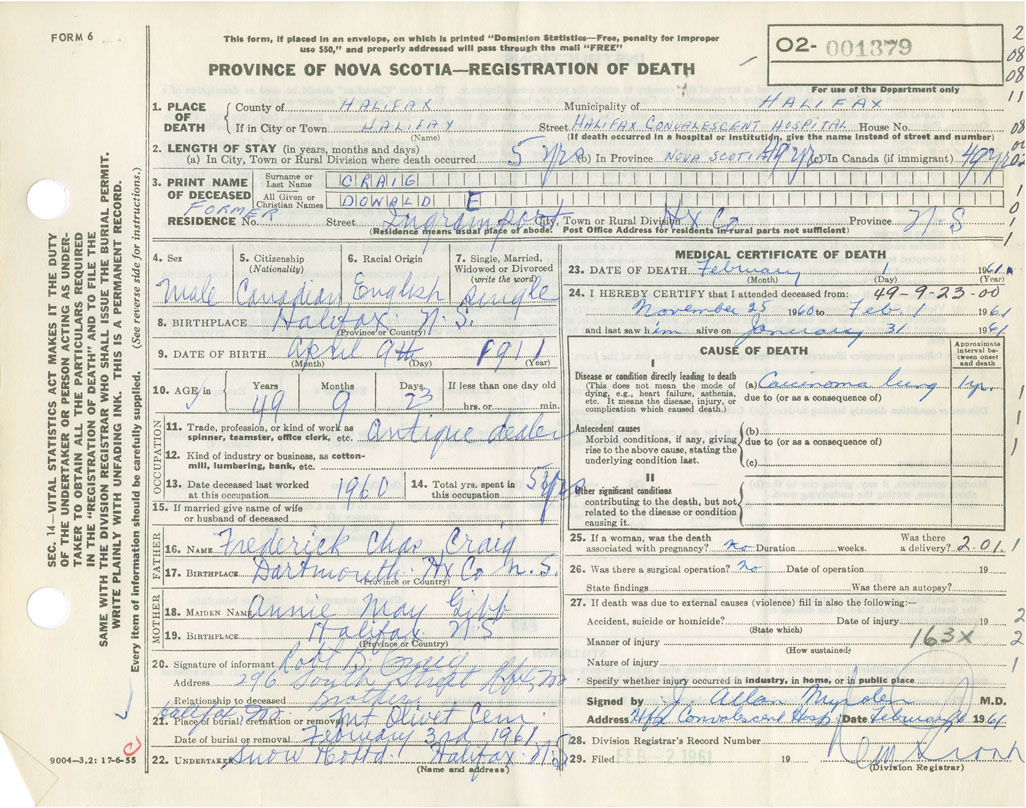 FORM 6
This form, if placed in an envelope, on which is printed "Dominion Statistics—Free, penalty for improper
use $50," and properly addressed will pass through the mail "FREE"
02- 001379
PROVINCE OF NOVA SCOTIA—REGISTRATION OF DEATH
For use of the Department only
1. PLACE OF DEATH
County of HALIFAX Municipality of HALIFAX
If in City or Town HALIFAX Street HALIFAX CONVALESCENT HOSPITAL House No.
(Name) (If death occurred in a hospital or institution, give the name instead of street and number)
2. LENGTH OF STAY (in years, months and days)
(a) In City, Town or Rural Division where death occurred 5 yrs (b) In Province NOVA SCOTIA 49 yrs (c) In Canada (if immigrant) 49 yrs
3. PRINT NAME OF DECEASED
Surname or Last Name CRAIG
All Given or Christian Names DOWALD E
FORMER
RESIDENCE No. Street Ingramport City, Town or Rural Division Hx Co Province N S
(Residence means usual place of abode. Post Office Address for residents in rural parts not sufficient)
4. Sex Male
5. Citizenship (Nationality) Canadian
6. Racial Origin English
7. Single, Married, Widowed or Divorced (write the word) Single
8. BIRTHPLACE Halifax N.S.
(Province or Country)
9. DATE OF BIRTH April 9th 1911
(Month) (Day) (Year)
10. AGE Years 49 Months 9 Days 23 If less than one day old hrs. or min.
OCCUPATION
11. Trade, profession, or kind of work as spinner, teamster, office clerk, etc. Antique dealer
12. Kind of industry or business, as cotton-mill, lumbering, bank, etc.
13. Date deceased last worked at this occupation 1960
14. Total yrs. spent in this occupation 5 yrs
15. If married give name of wife or husband of deceased
FATHER
16. NAME Frederick Chas Craig
17. BIRTHPLACE Dartmouth Hx Co N.S.
(Province or Country)
MOTHER
18. MAIDEN NAME Annie May Gibb
19. BIRTHPLACE Halifax N S
(Province or Country)
20. Signature of informant Robt B. Craig
Address 296 South Street Hfx, N.S.
Relationship to deceased Brother
21. Place of burial, cremation or removal Mt Olivet Cem.
Date of burial or removal February 3rd 1961
22. UNDERTAKER Snow Co Ltd. Halifax N.S.
(Name and address)
9004—3.2: 17-6-55
MEDICAL CERTIFICATE OF DEATH
23. DATE OF DEATH February 1 1961
(Month) (Day) (Year)
24. I HEREBY CERTIFY that I attended deceased from: 49-9-23-00
November 25 1960 to Feb. 1 1961
and last saw him alive on January 31 1961
CAUSE OF DEATH
Approximate interval between onset and death
I
Disease or condition directly leading to death
(This does not mean the mode of dying, e.g., heart failure, asthenia, etc. It means the disease, injury, or complication which caused death.)
(a) Carcinoma lung 1 yr.
due to (or as a consequence of)
Antecedent causes
Morbid conditions, if any, giving rise to the above cause, stating the underlying condition last.
(b)
due to (or as a consequence of)
(c)
II
Other significant conditions
contributing to the death, but not related to the disease or condition causing it.
25. If a woman, was the death associated with pregnancy? no Duration weeks. Was there a delivery? 2.01.1
26. Was there a surgical operation? no Date of operation 19
State findings Was there an autopsy?
27. If death was due to external causes (violence) fill in also the following:—
Accident, suicide or homicide? Date of injury 19
(State which)
163X
Manner of injury
(How sustained)
Nature of injury
Specify whether injury occurred in industry, in home, or in public place
Signed by J. Allan M.D.
Address Hfx Convalescent Hosp. Date February 1961
28. Division Registrar's Record Number
29. Filed FEB - 2 1961 19
(Division Registrar)
SEC. 14—VITAL STATISTICS ACT MAKES IT THE DUTY
OF THE UNDERTAKER OR PERSON ACTING AS UNDER-
TAKER TO OBTAIN ALL THE PARTICULARS REQUIRED
IN THE "REGISTRATION OF DEATH" AND TO FILE THE
SAME WITH THE DIVISION REGISTRAR WHO SHALL ISSUE THE BURIAL PERMIT.
WRITE PLAINLY WITH UNFADING INK. THIS IS A PERMANENT RECORD.
Every item of information should be carefully supplied. (See reverse side for instructions.)